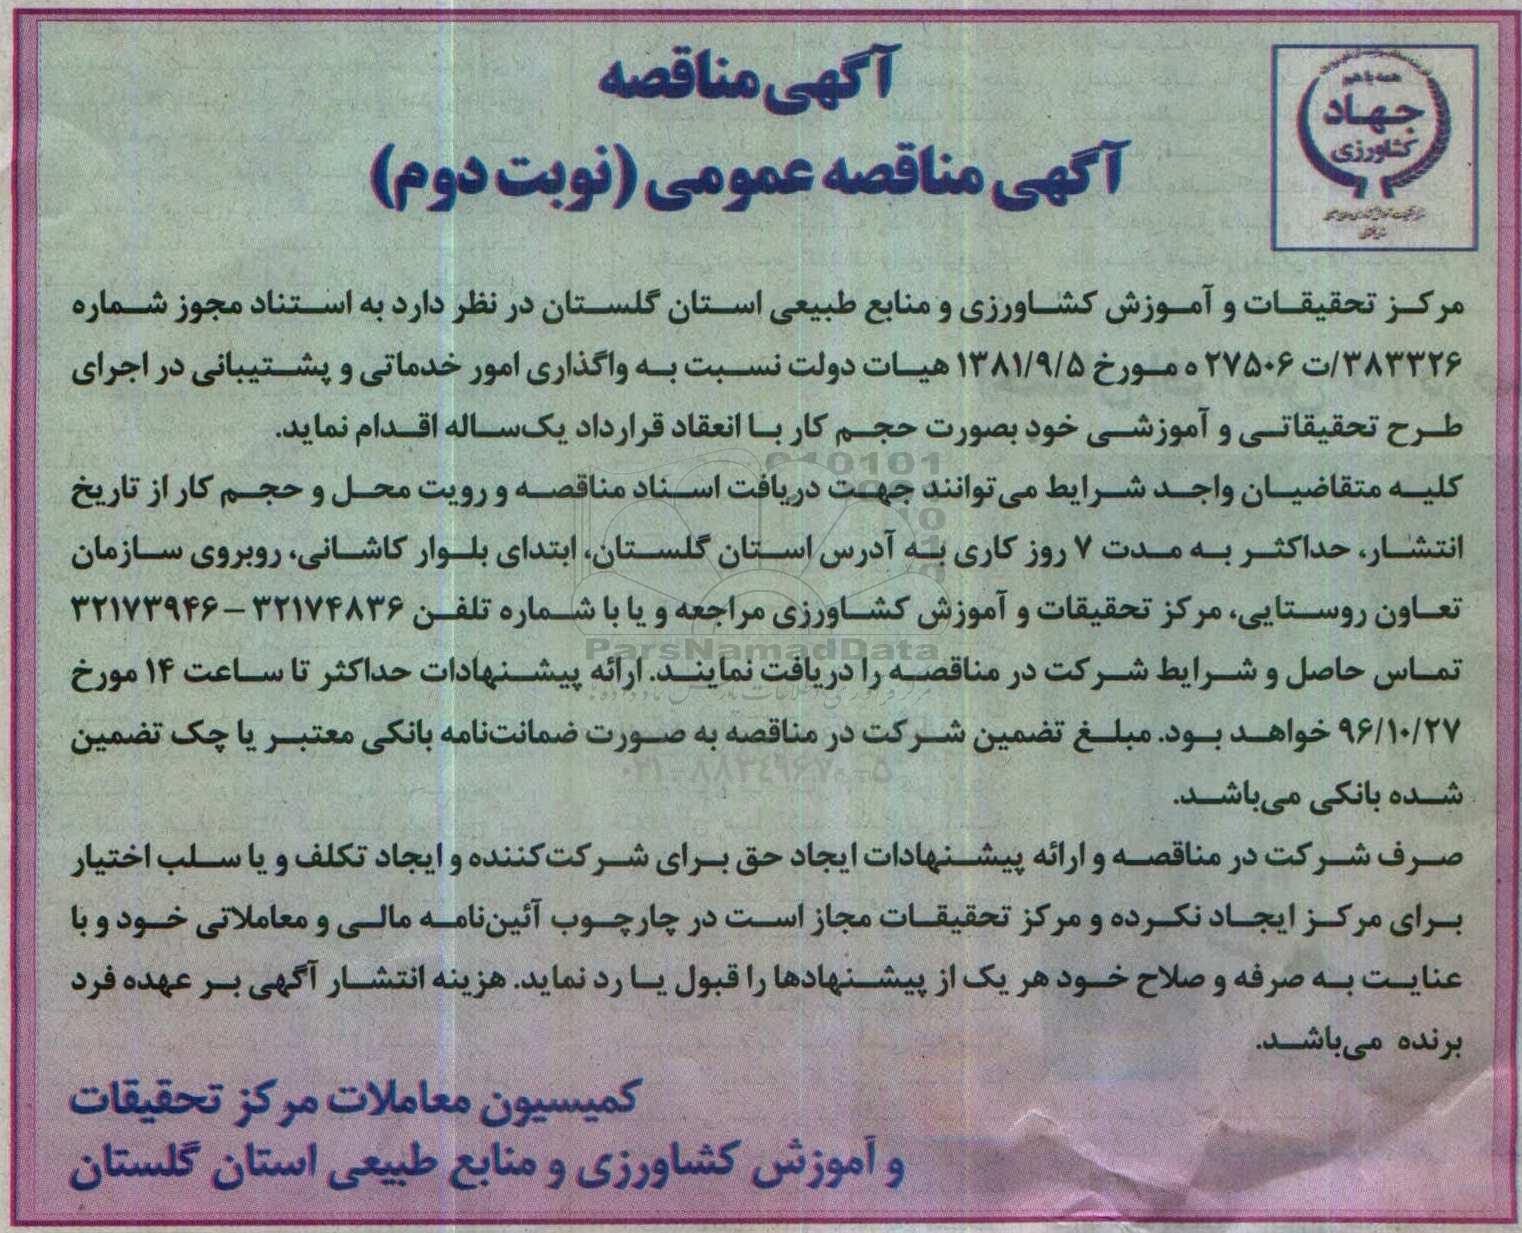 آگهی مناقصه
آگهی مناقصه عمومی (نوبت دوم)
همه با هم
جهاد
کشاورزی
مرکز تحقیقات و آموزش کشاورزی و منابع طبیعی استان گلستان در نظر دارد به استناد مجوز شماره
۳۸۳۳۲۶/ت ۲۷۵۰۶ ه مورخ ۱۳۸۱/۹/۵ هیات دولت نسبت به واگذاری امور خدماتی و پشتیبانی در اجرای
طرح تحقیقاتی و آموزشی خود بصورت حجم کار با انعقاد قرارداد یک‌ساله اقدام نماید.
کلیه متقاضیان واجد شرایط می‌توانند جهت دریافت اسناد مناقصه و رویت محل و حجم کار از تاریخ
انتشار، حداکثر به مدت ۷ روز کاری به آدرس استان گلستان، ابتدای بلوار کاشانی، روبروی سازمان
تعاون روستایی، مرکز تحقیقات و آموزش کشاورزی مراجعه و یا با شماره تلفن ۳۲۱۷۴۸۳۶ – ۳۲۱۷۳۹۴۶
تماس حاصل و شرایط شرکت در مناقصه را دریافت نمایند. ارائه پیشنهادات حداکثر تا ساعت ۱۴ مورخ
۹۶/۱۰/۲۷ خواهد بود. مبلغ تضمین شرکت در مناقصه به صورت ضمانت‌نامه بانکی معتبر یا چک تضمین
شده بانکی می‌باشد.
صرف شرکت در مناقصه و ارائه پیشنهادات ایجاد حق برای شرکت‌کننده و ایجاد تکلف و یا سلب اختیار
برای مرکز ایجاد نکرده و مرکز تحقیقات مجاز است در چارچوب آئین‌نامه مالی و معاملاتی خود و با
عنایت به صرفه و صلاح خود هر یک از پیشنهادها را قبول یا رد نماید. هزینه انتشار آگهی بر عهده فرد
برنده می‌باشد.
کمیسیون معاملات مرکز تحقیقات
و آموزش کشاورزی و منابع طبیعی استان گلستان
ParsNamadData
۰۲۱-۸۸۳۴۹۶۷۰-۵